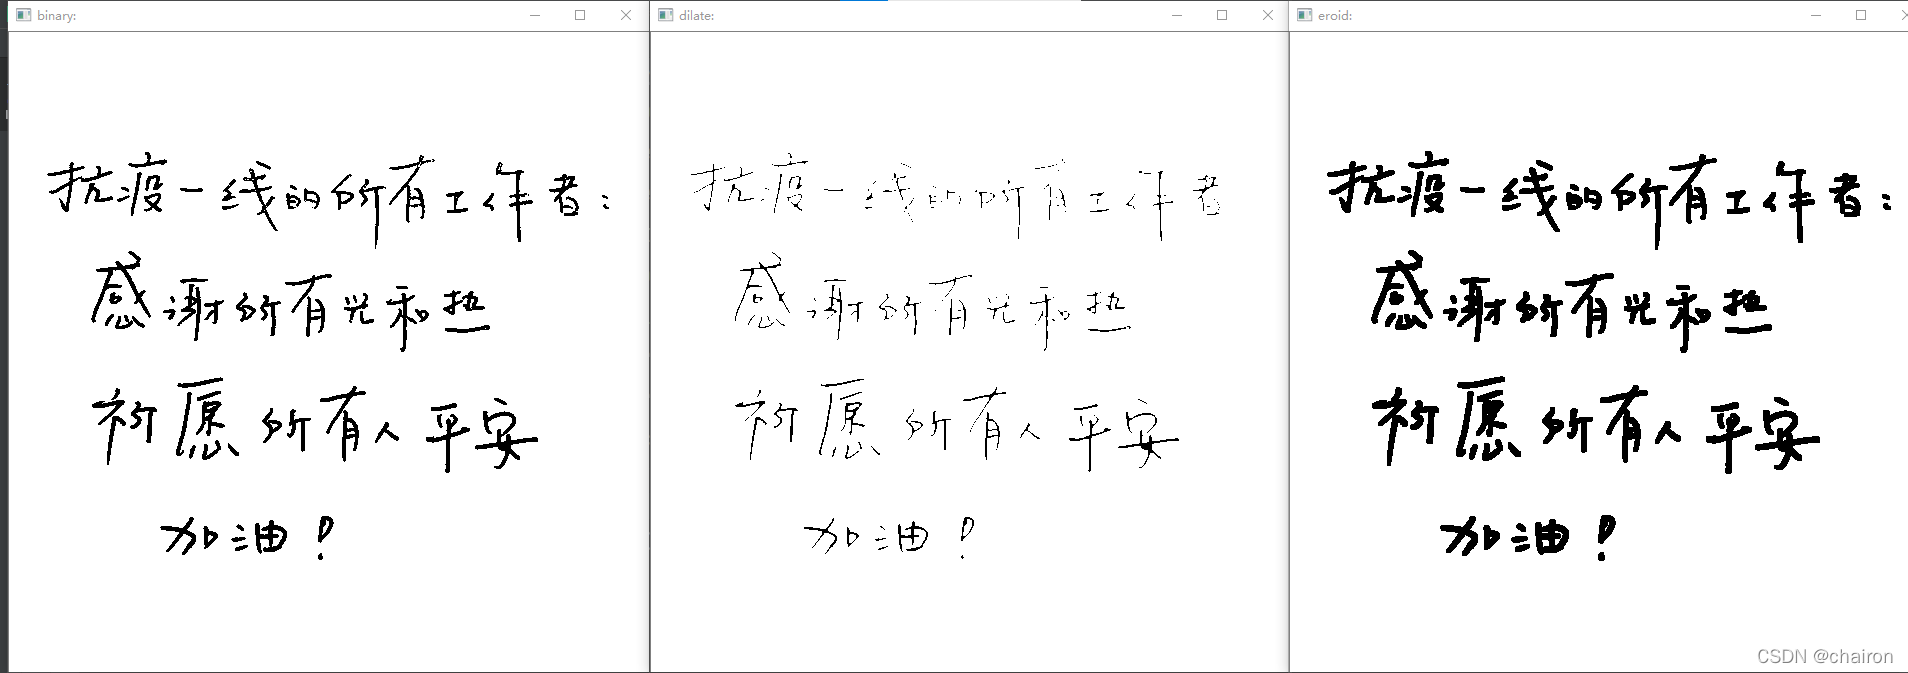 binary:
抗疫一线的所有工作者：
感谢所有光和热
祈愿所有人平安
加油！
dilate:
抗疫一线的所有工作者
感谢所有光和热
祈愿所有人平安
加油！
eroid:
抗疫一线的所有工作者：
感谢所有光和热
祈愿所有人平安
加油！
CSDN @chairon